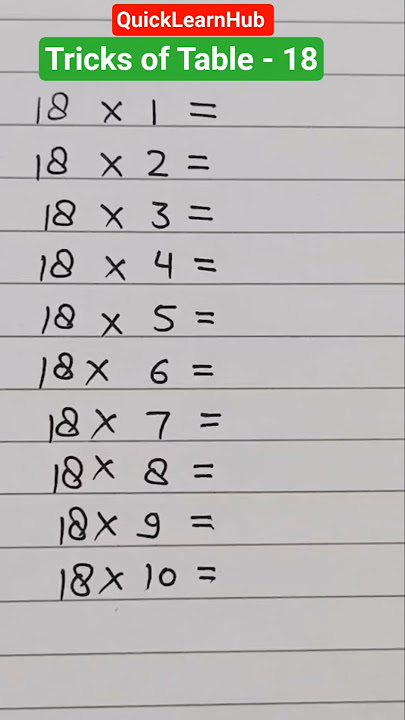 QuickLearnHub
Tricks of Table - 18
18 × 1 =
18 × 2 =
18 × 3 =
18 × 4 =
18 × 5 =
18 × 6 =
18 × 7 =
18 × 8 =
18 × 9 =
18 × 10 =